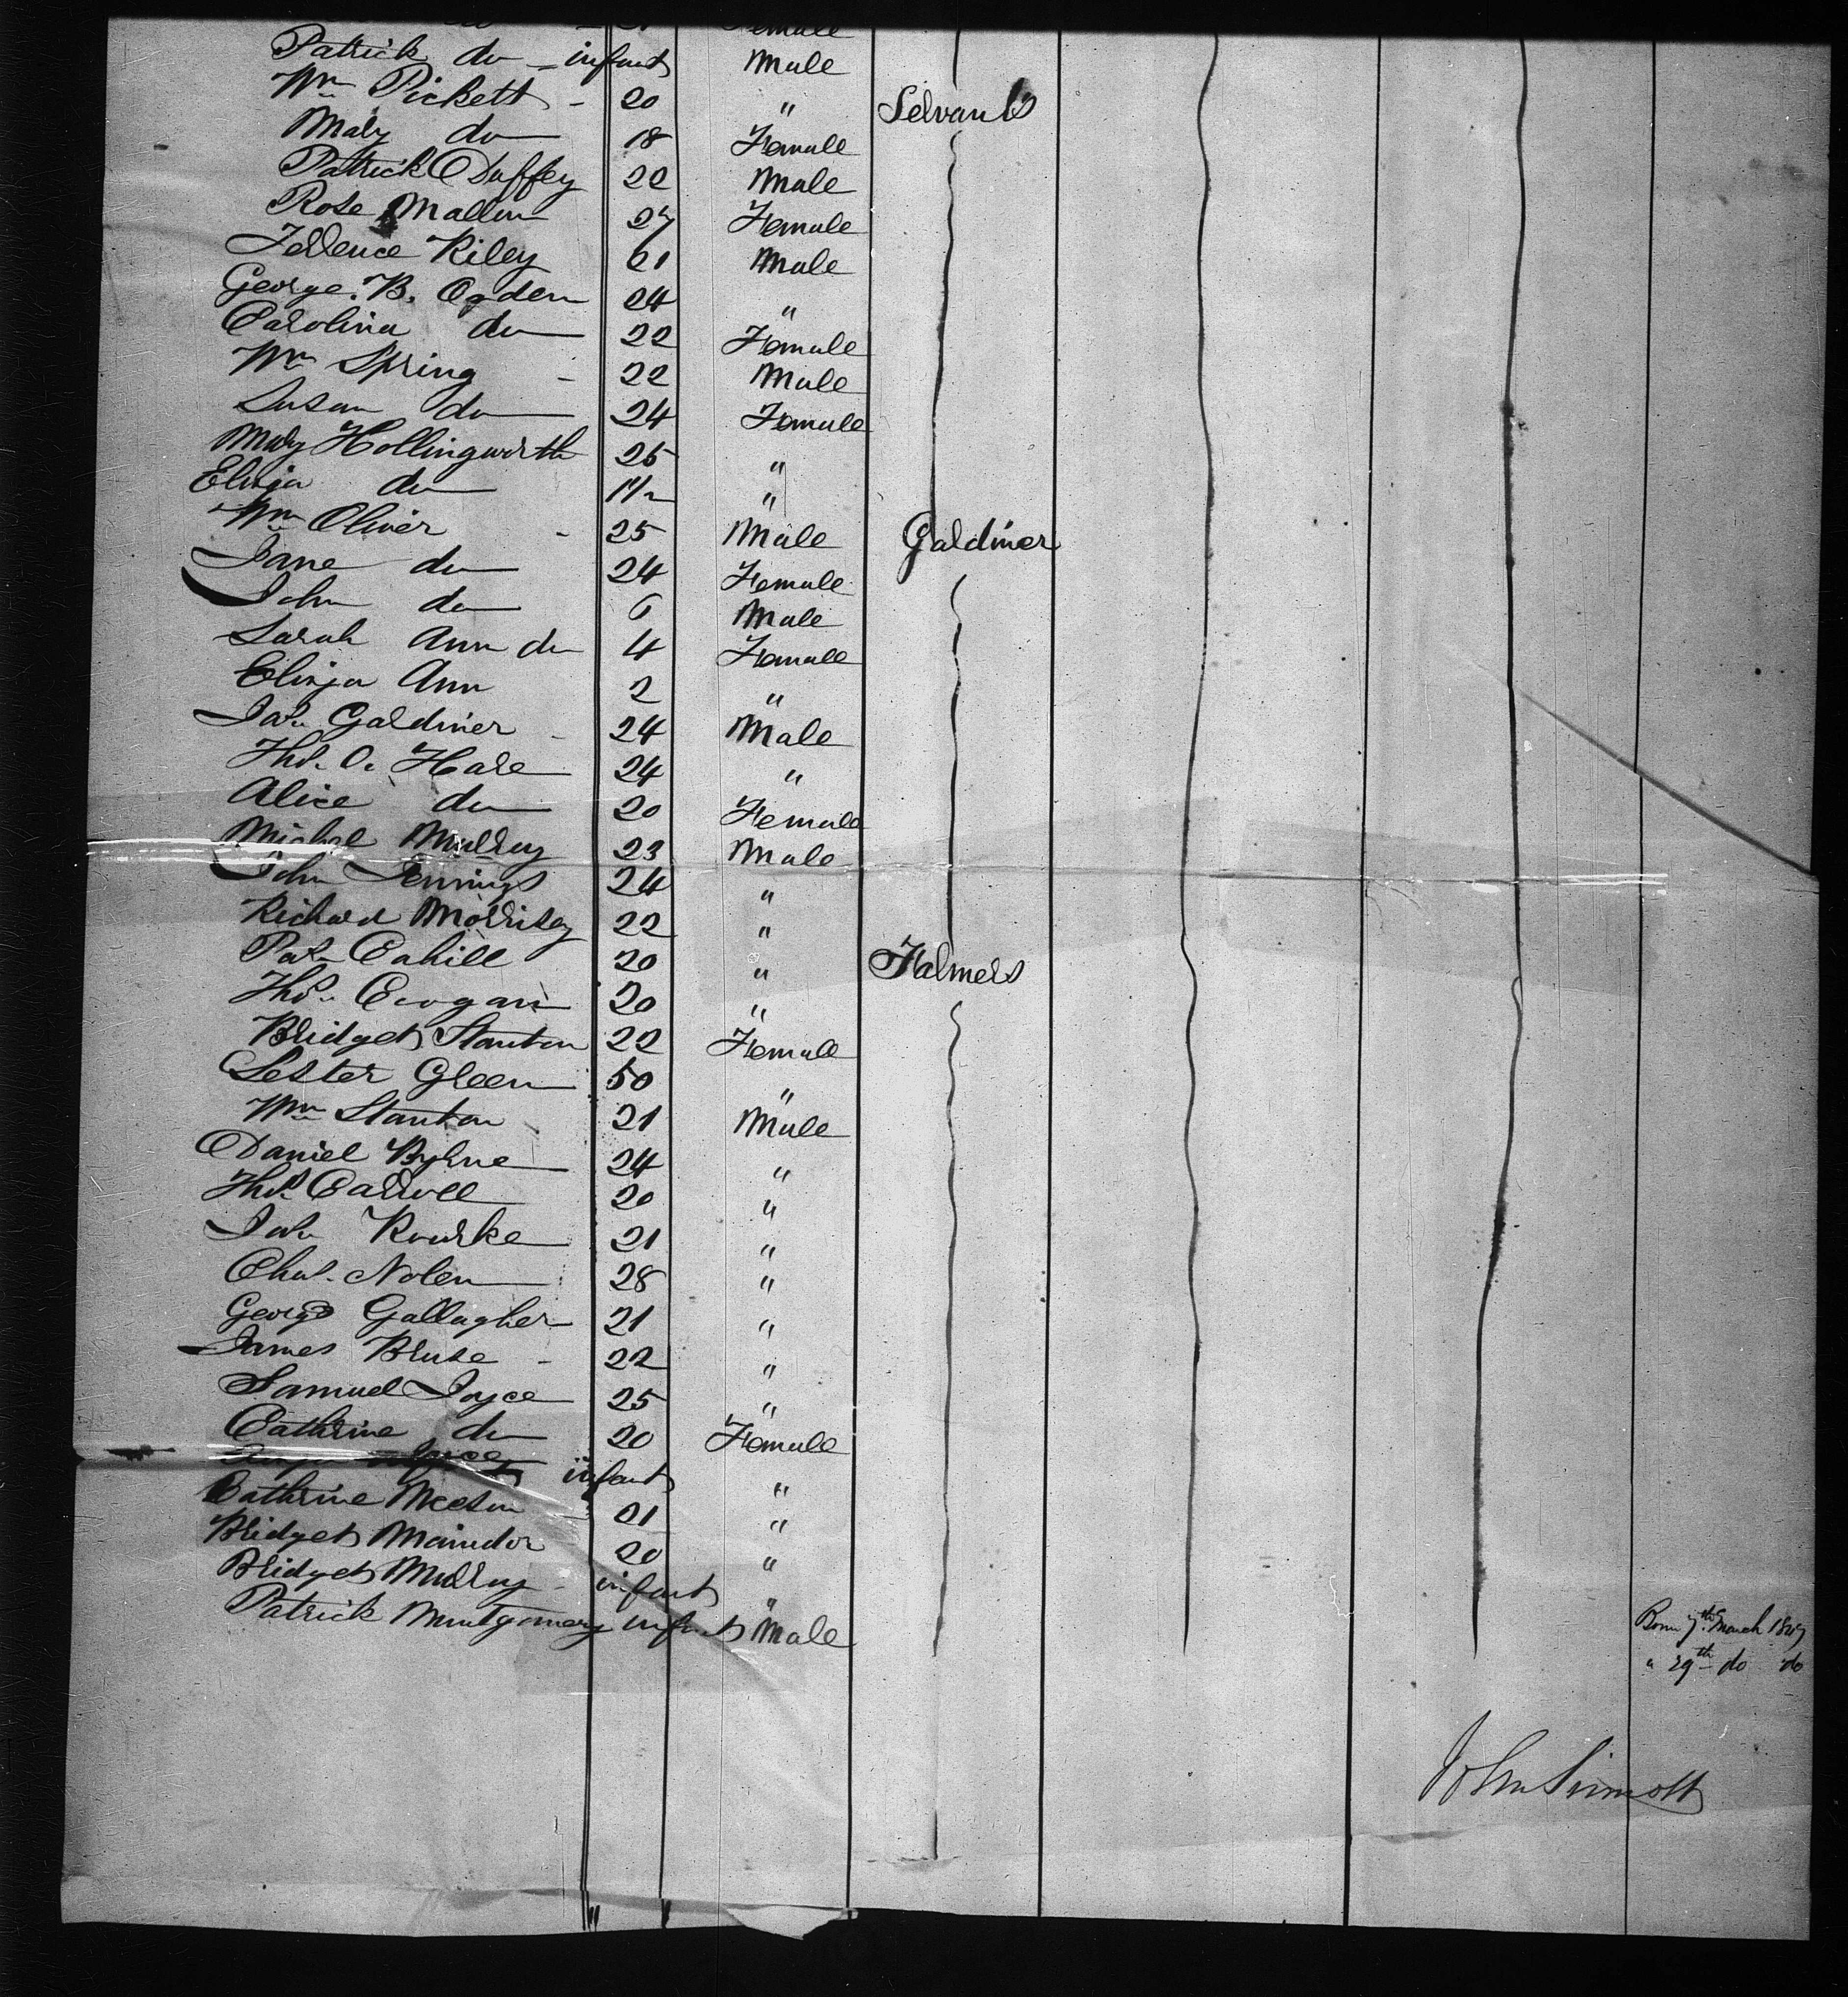 Female
Patrick do - infant Male
Wm Pickett - 20 " Servants
Mary do 18 Female
Patrick Duffey 22 Male
Rose Mallen 27 Female
Terrence Riley 21 Male
George. B. Ogden 24 "
Carolina do 22 Female
Wm Spring - 22 Male
Susan do 24 Female
Mary Hollingworth 25 "
Eliza do 1 1/2 "
Wm Oliver - 25 Male Gardiner
Jane do 24 Female
John do 6 Male
Sarah Ann do 4 Female
Eliza Ann 2 "
Jas. Gardiner - 24 Male
Thos. O. Hare 24 "
Alice do 20 Female
Michal Murray 23 Male
John Jennings 24 "
Richard Morrisey 22 "
Pat. Cahill 20 " Farmers
Thos. Cogan 20 "
Bridget Stanton 22 Female
Lester Green 50 "
Wm Stanton 21 Male
Daniel Byrne 24 "
Thos. Carroll 20 "
Jas. Rourke 21 "
Chas. Nolen 28 "
George Gallagher 21 "
James Bruse - 22 "
Samuel Joyce 25 "
Cathrine do 20 Female
Joyce infant "
Cathrine 21 "
Bridget 20 "
Bridget Murray - infant "
Patrick Montgomery infant Male
Born 7th March 1847
" 29th do do
John Sinnott